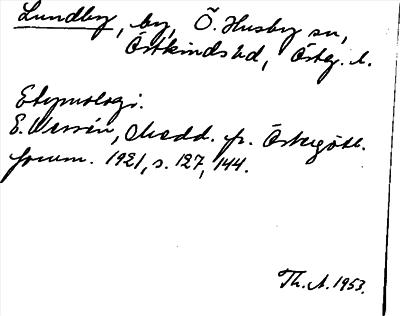 Lundby, by, Ö. Husby sn,
Östkinds hd, Östg. l.
Etymologi.
E. Wessén, Medd. fr. Östergötl.
fornm. 1921, s. 127, 144.
Th. A. 1953.